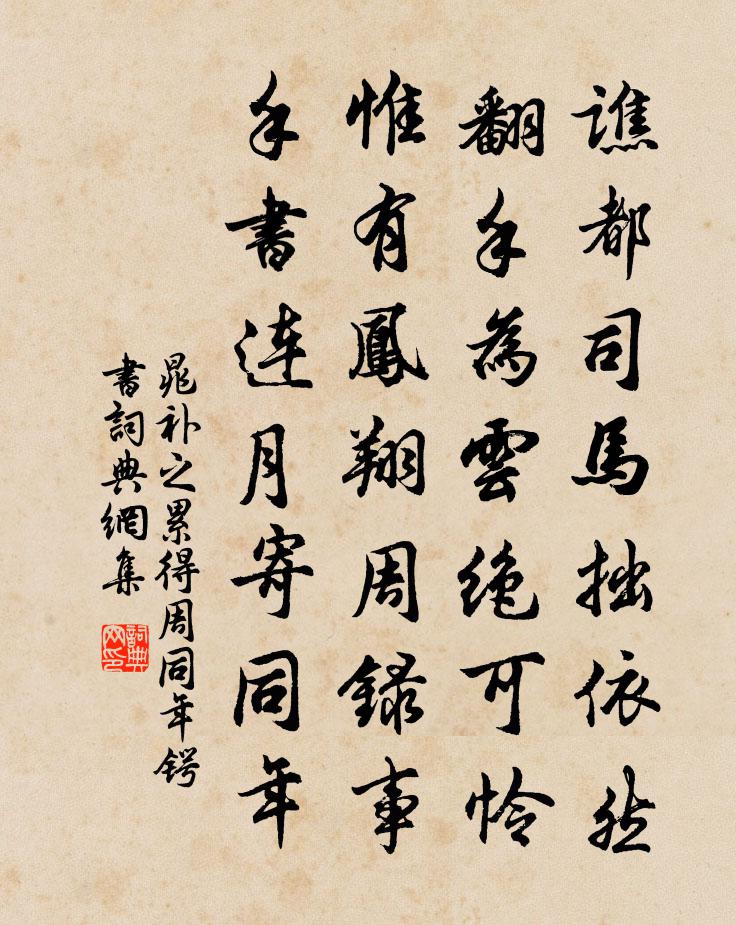 譙都司馬拙依然
翻手為雲絶可憐
惟有鳳翔周録事
手書連月寄同年
晁补之累得周同年鍔
書詞典網集
詞典网印